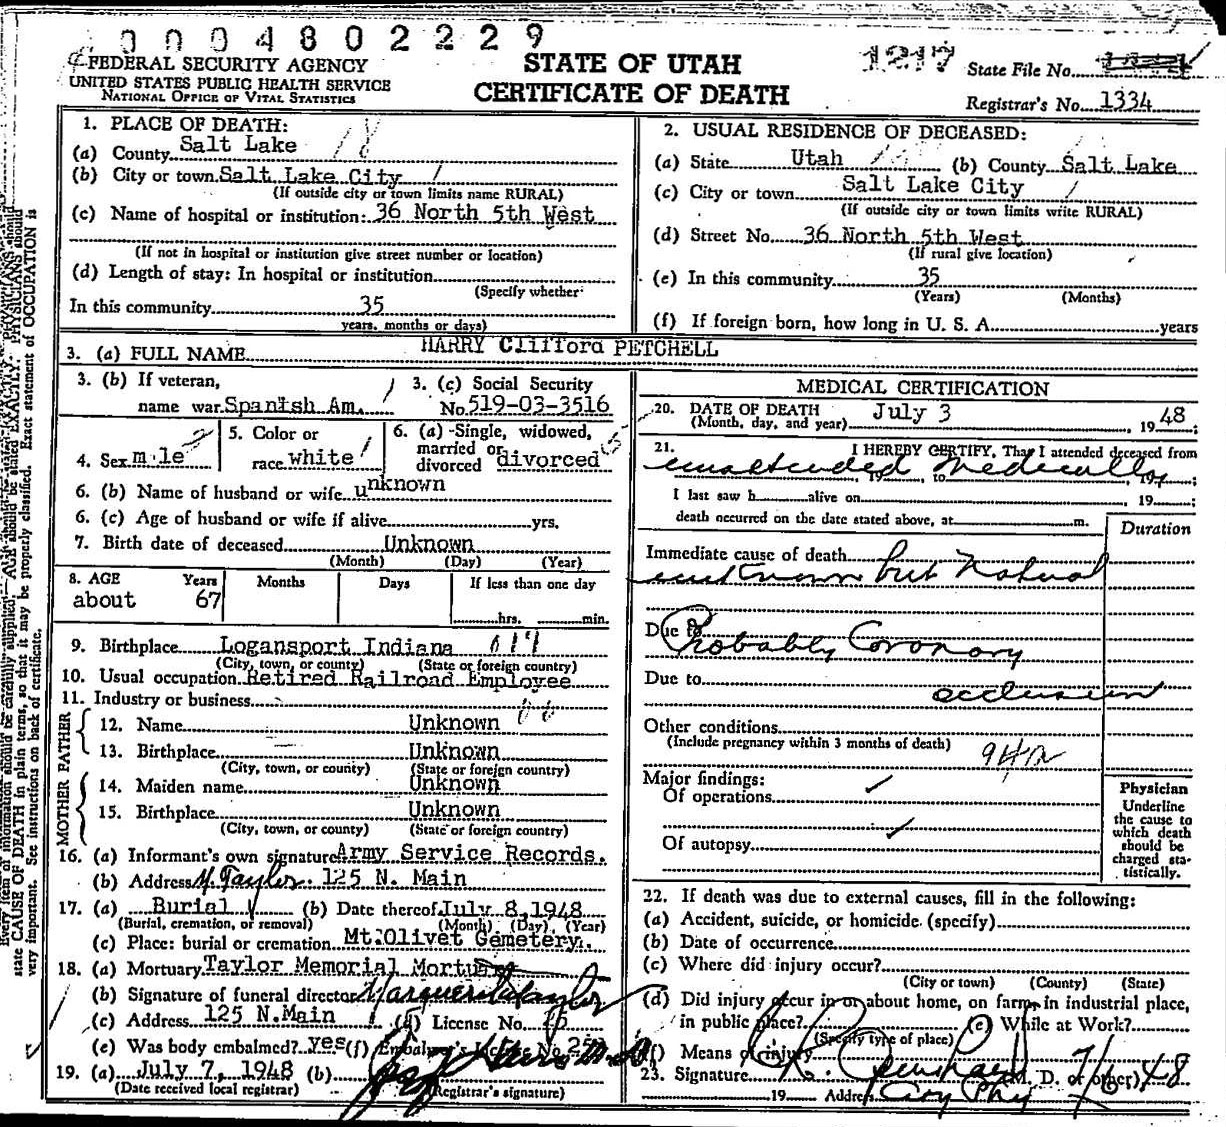 0004802229
FEDERAL SECURITY AGENCY
UNITED STATES PUBLIC HEALTH SERVICE
NATIONAL OFFICE OF VITAL STATISTICS
STATE OF UTAH
CERTIFICATE OF DEATH
1217 State File No.
Registrar's No. 1334
1. PLACE OF DEATH:
(a) County Salt Lake 18
(b) City or town Salt Lake City 1
(If outside city or town limits name RURAL)
(c) Name of hospital or institution: 36 North 5th West
(If not in hospital or institution give street number or location)
(d) Length of stay: In hospital or institution
(Specify whether
In this community 35
years, months or days)
2. USUAL RESIDENCE OF DECEASED:
(a) State Utah (b) County Salt Lake
(c) City or town Salt Lake City 1
(If outside city or town limits write RURAL)
(d) Street No. 36 North 5th West
(If rural give location)
(e) In this community 35
(Years) (Months)
(f) If foreign born, how long in U. S. A. years
3. (a) FULL NAME HARRY Clifford PETCHELL
3. (b) If veteran, 3. (c) Social Security
name war Spanish Am. / No. 519-03-3516
4. Sex m le 2 5. Color or race white 1 6. (a) Single, widowed, married or divorced divorced 5
6. (b) Name of husband or wife unknown
6. (c) Age of husband or wife if alive yrs.
7. Birth date of deceased Unknown
(Month) (Day) (Year)
8. AGE Years Months Days If less than one day
about 67 hrs. min.
9. Birthplace Logansport Indiana
(City, town, or county) (State or foreign country)
10. Usual occupation Retired Railroad Employee
11. Industry or business
FATHER
12. Name Unknown
13. Birthplace Unknown
(City, town, or county) (State or foreign country)
MOTHER
14. Maiden name Unknown
15. Birthplace Unknown
(City, town, or county) (State or foreign country)
16. (a) Informant's own signature Army Service Records.
(b) Address M. Taylor. 125 N. Main
17. (a) Burial (b) Date thereof July 8, 1948
(Burial, cremation, or removal) (Month) (Day) (Year)
(c) Place: burial or cremation Mt. Olivet Cemetery.
18. (a) Mortuary Taylor Memorial Mortuary
(b) Signature of funeral director Marguerite Taylor
(c) Address 125 N. Main (d) License No.
(e) Was body embalmed? yes (f) Embalmer's License No. 25
19. (a) July 7, 1948 (b)
(Date received local registrar) (Registrar's signature)
MEDICAL CERTIFICATION
20. DATE OF DEATH
(Month, day, and year) July 3 , 19 48;
21. I HEREBY CERTIFY, That I attended deceased from
unattended medically, 19 to , 19 ;
I last saw h alive on 19 ;
death occurred on the date stated above, at m.
Duration
Immediate cause of death
unknown but Natural
Due to Probably Coronary
Due to occlusion
Other conditions
(Include pregnancy within 3 months of death)
94a
Major findings:
Of operations ✓
Of autopsy ✓
Physician
Underline
the cause to
which death
should be
charged sta-
tistically.
22. If death was due to external causes, fill in the following:
(a) Accident, suicide, or homicide. (specify)
(b) Date of occurrence
(c) Where did injury occur?
(City or town) (County) (State)
(d) Did injury occur in or about home, on farm, in industrial place,
in public place? (e) While at Work?
(Specify type of place)
(f) Means of injury
23. Signature (M. D. or other) 7/6/48
19 Address City Phy
Every item of information should be carefully supplied. AGE should be stated EXACTLY. PHYSICIANS should
state CAUSE OF DEATH in plain terms, so that it may be properly classified. Exact statement of OCCUPATION is
very important. See instructions on back of certificate.